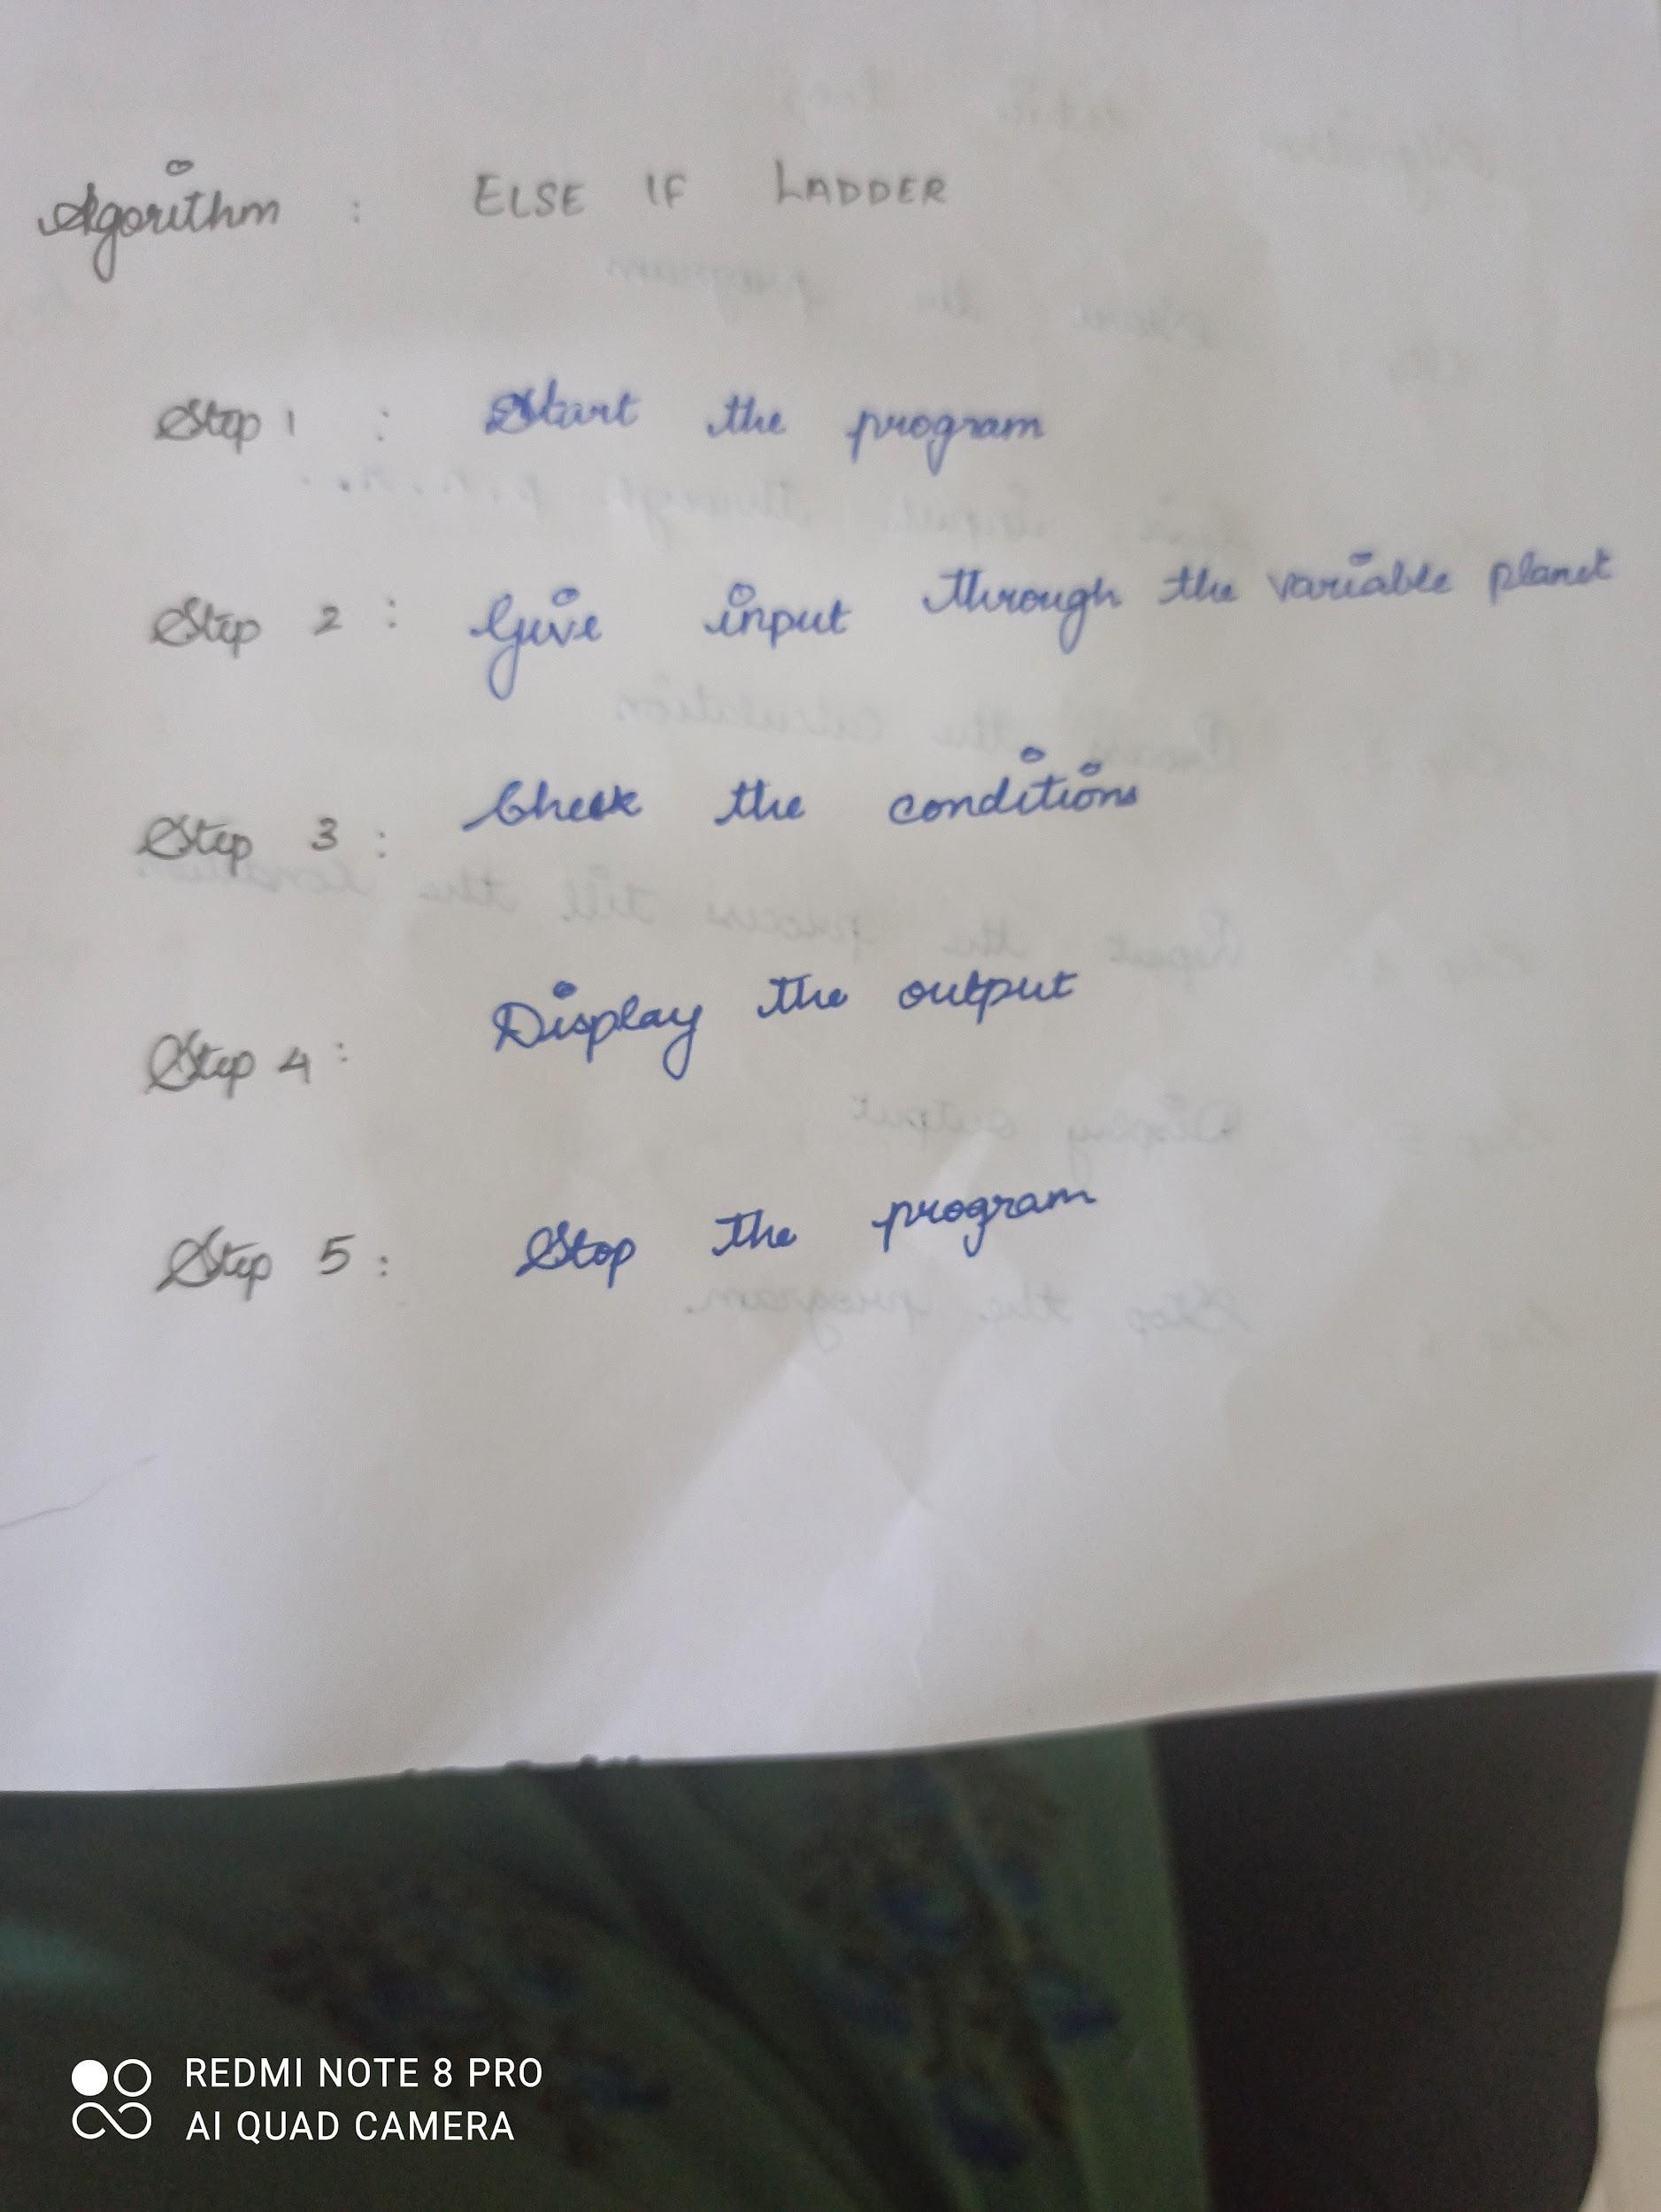 Algorithm : ELSE IF LADDER
Step 1 : Start the program
Step 2 : Give input through the variable planet
Step 3 : Check the conditions
Step 4 : Display the output
Step 5 : Stop the program
REDMI NOTE 8 PRO
AI QUAD CAMERA